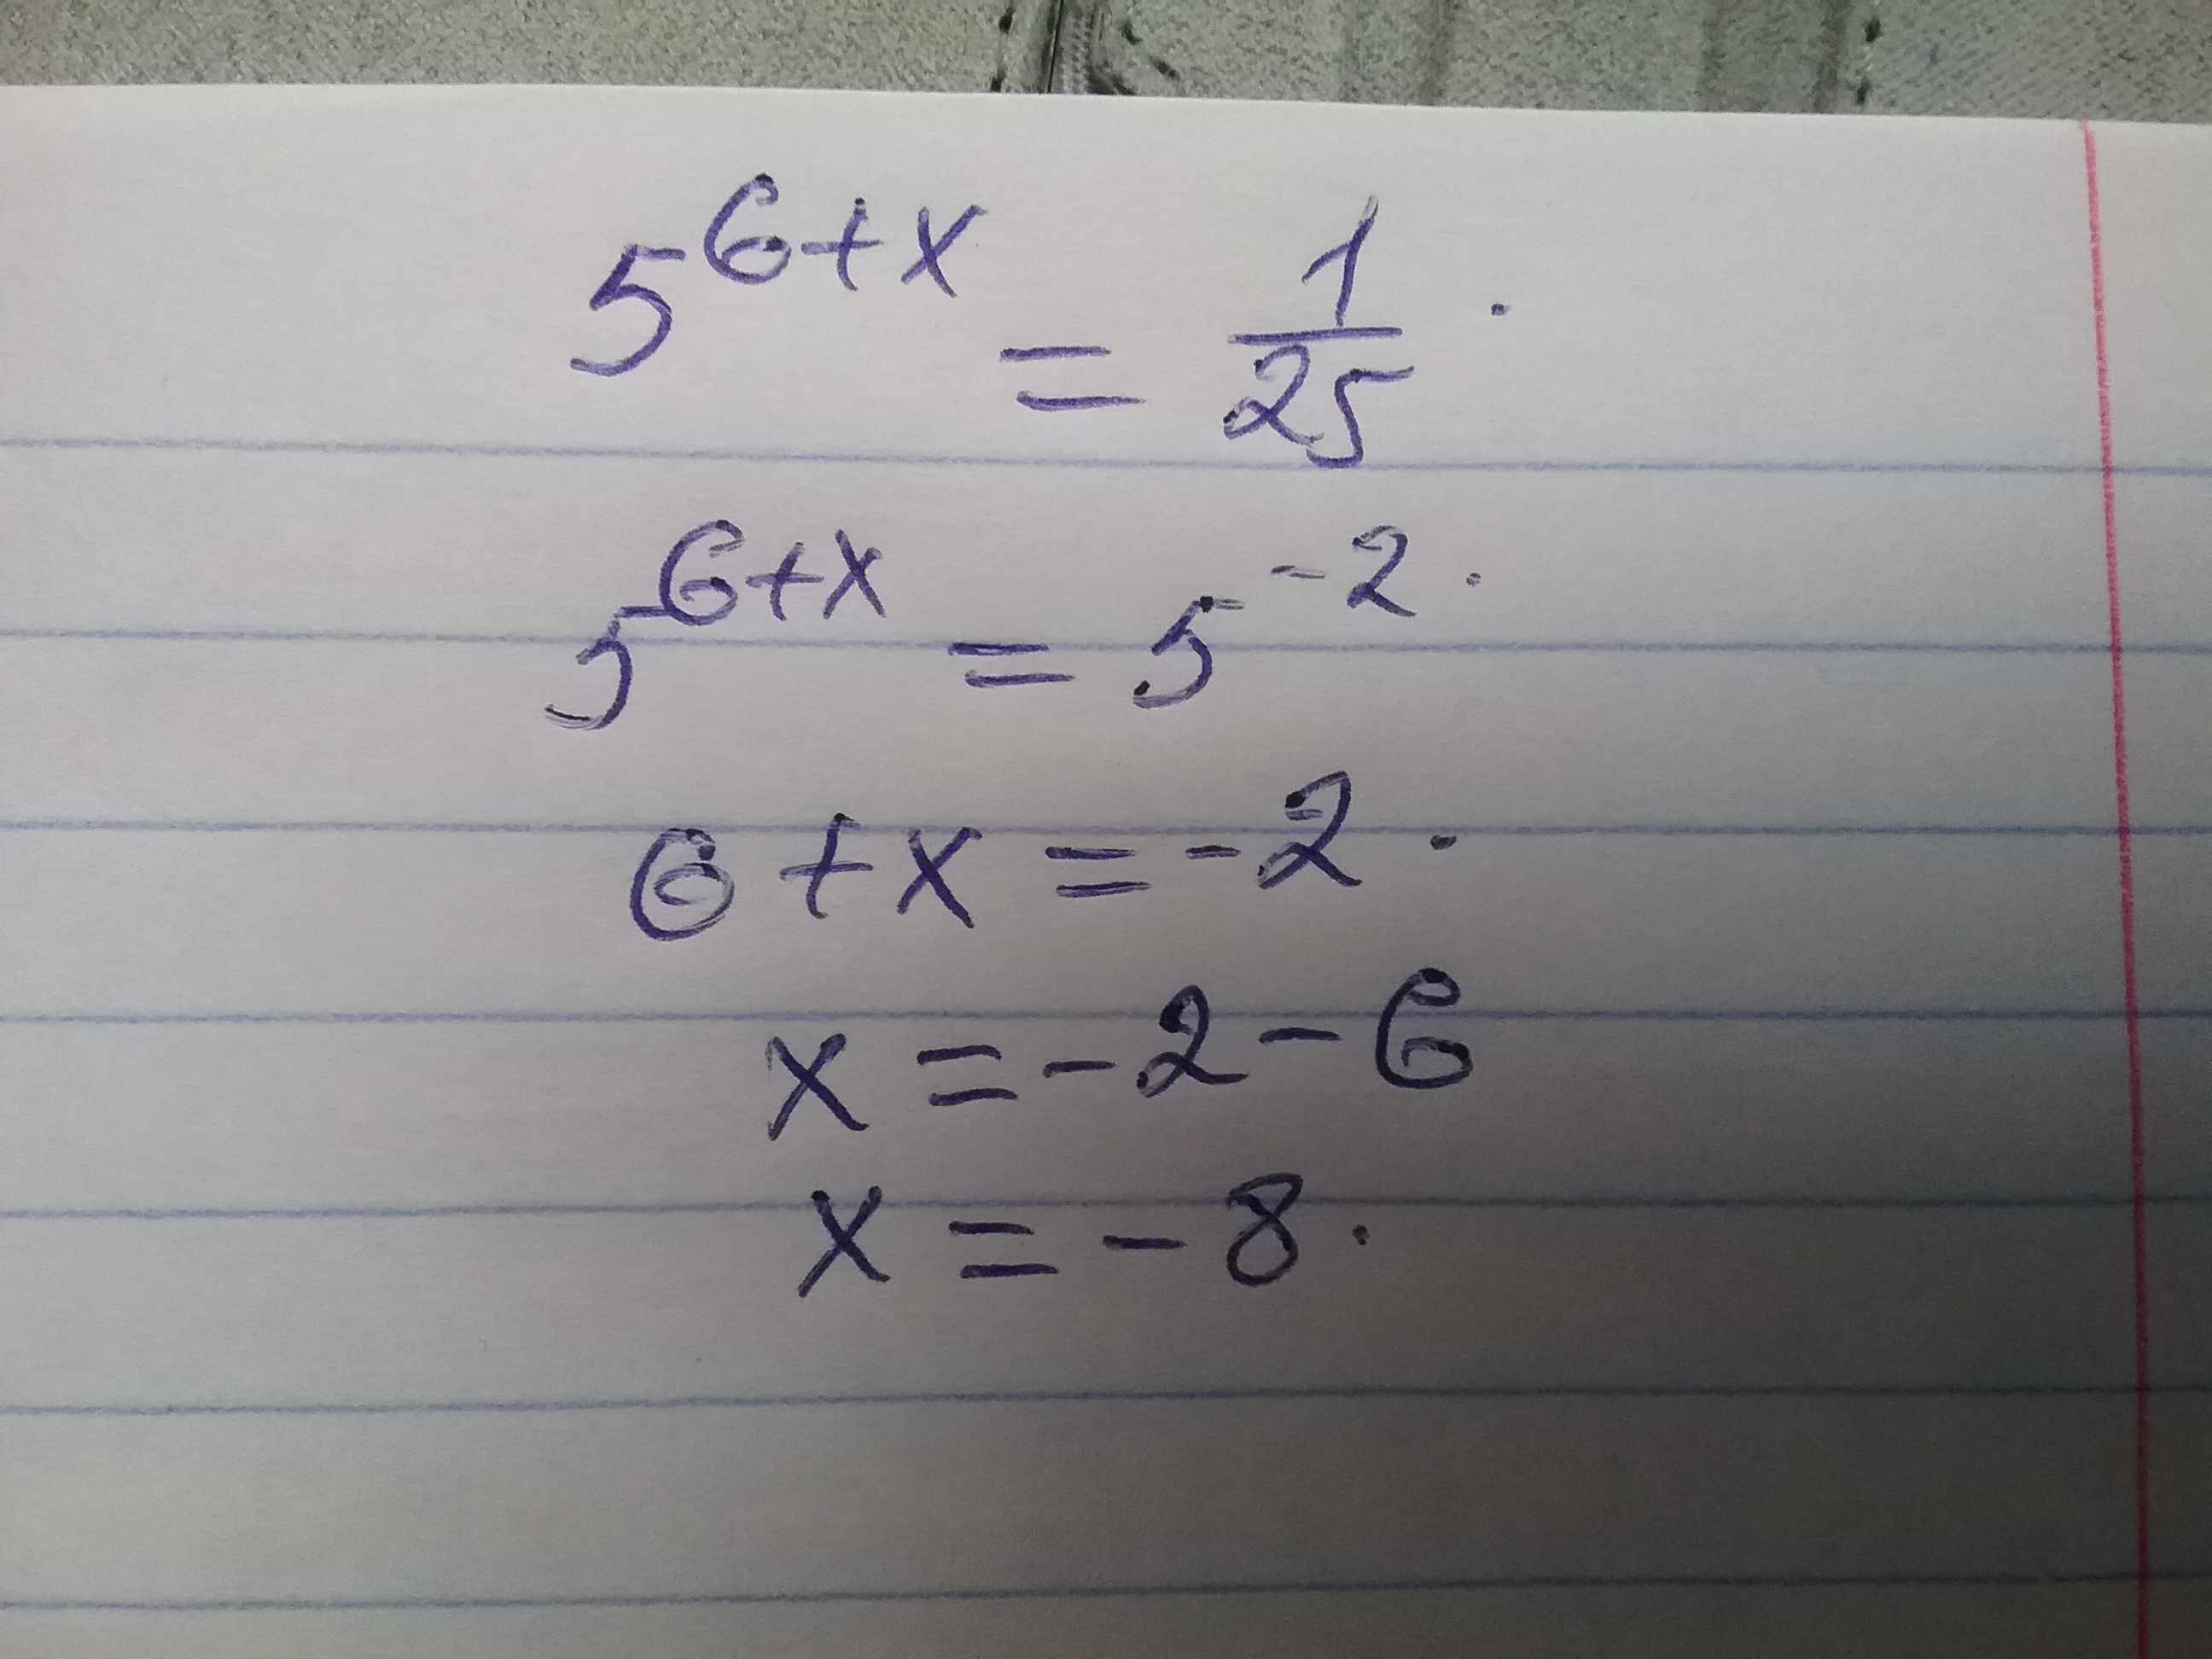 5^{6+x} = \frac{1}{25} .
5^{6+x} = 5^{-2} .
6 + x = -2 .
x = -2 - 6
x = -8 .